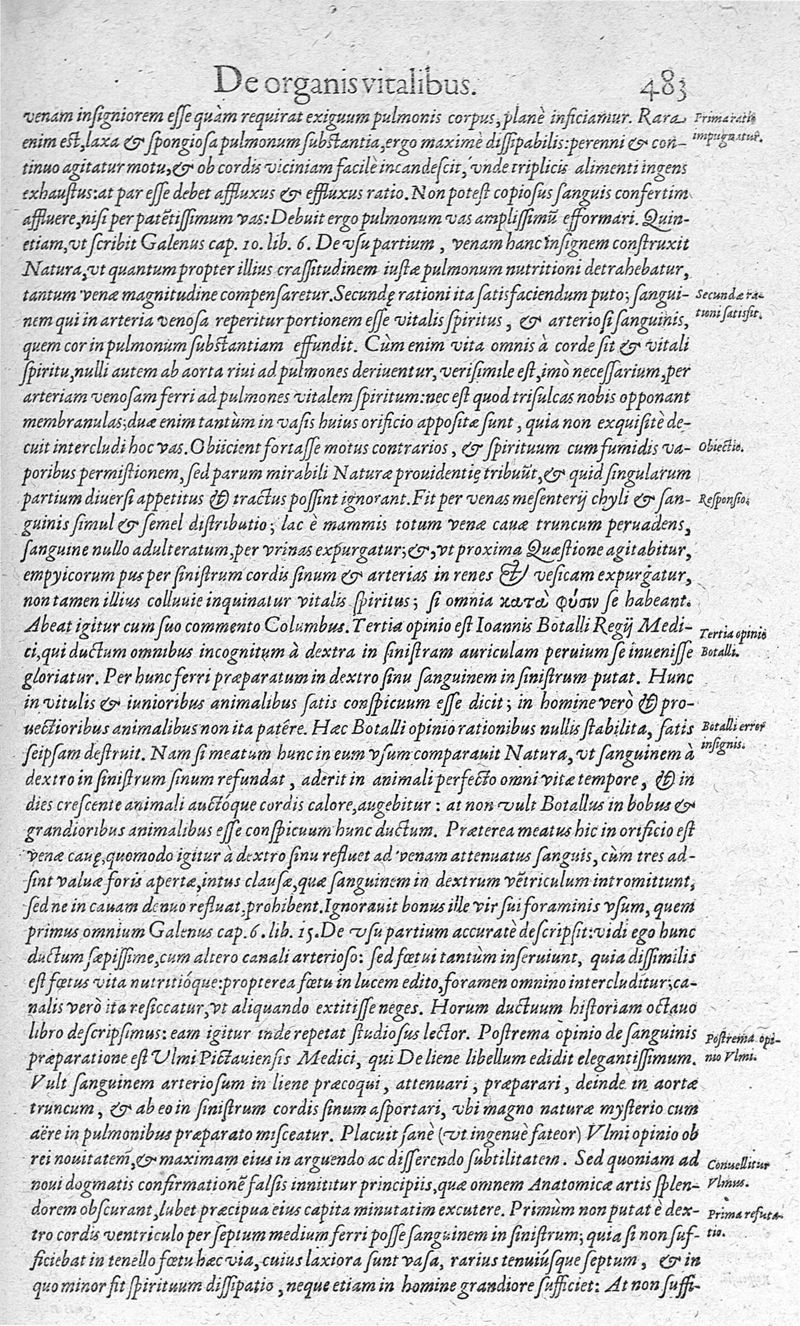 De organis vitalibus. 483
venam insigniorem esse quàm requirat exiguum pulmonis corpus, planè inficiamur. Rara
Prima ratio
enim est, laxa & spongiosa pulmonum substantia, ergo maximè dissipabilis: perenni & con-
impugnatur.
tinuo agitatur motu, & ob cordis viciniam facilè incandescit, vnde triplicis alimenti ingens
exhaustus: at par esse debet affluxus & effluxus ratio. Non potest copiosus sanguis confertim
affluere, nisi per patẽtissimum vas: Debuit ergo pulmonum vas amplissimũ efformari. Quin-
etiam, vt scribit Galenus cap. 10. lib. 6. De vsu partium, venam hanc insignem construxit
Natura, vt quantum propter illius crassitudinem iustæ pulmonum nutritioni detrahebatur,
tantum venæ magnitudine compensaretur. Secundę rationi ita satisfaciendum puto; sangui-
Secundæ ra-
nem qui in arteria venosa reperitur portionem esse vitalis spiritus, & arteriosi sanguinis,
tioni satisfit.
quem cor in pulmonum substantiam effundit. Cùm enim vita omnis à corde sit & vitali
spiritu, nulli autem ab aorta riui ad pulmones deriuentur, verisimile est, imò necessarium, per
arteriam venosam ferri ad pulmones vitalem spiritum: nec est quod trisulcas nobis opponant
membranulas; duæ enim tantùm in vasis huius orificio appositæ sunt, quia non exquisitè de-
cuit intercludi hoc vas. Obiicient fortasse motus contrarios, & spirituum cum fumidis va-
Obiectio.
poribus permistionem, sed parum mirabili Naturæ prouidentię tribuũt, & quid singularum
partium diuersi appetitus & tractus possint ignorant. Fit per venas mesenterij chyli & san-
Responsio;
guinis simul & semel distributio; lac è mammis totum venæ cauæ truncum peruadens,
sanguine nullo adulteratum, per vrinas expurgatur; &, vt proxima Quæstione agitabitur,
empyicorum pus per sinistrum cordis sinum & arterias in renes & vesicam expurgatur,
non tamen illius colluuie inquinatur vitalis spiritus; si omnia κατὰ φύσιν se habeant.
Abeat igitur cum suo commento Columbus. Tertia opinio est Ioannis Botalli Regij Medi-
Tertia opinio
ci, qui ductum omnibus incognitum à dextra in sinistram auriculam peruium se inuenisse
Botalli.
gloriatur. Per hunc ferri præparatum in dextro sinu sanguinem in sinistrum putat. Hunc
in vitulis & iunioribus animalibus satis conspicuum esse dicit; in homine verò & pro-
uectioribus animalibus non ita patêre. Hæc Botalli opinio rationibus nullis stabilita, satis
Botalli error
seipsam destruit. Nam si meatum hunc in eum vsum comparauit Natura, vt sanguinem à
insignis.
dextro in sinistrum sinum refundat, aderit in animali perfecto omni vitæ tempore, & in
dies crescente animali auctóque cordis calore, augebitur: at non vult Botallus in bobus &
grandioribus animalibus esse conspicuum hunc ductum. Præterea meatus hic in orificio est
venæ cauę, quomodo igitur à dextro sinu refluet ad venam attenuatus sanguis, cùm tres ad-
sint valuæ foris apertæ, intus clausæ, quæ sanguinem in dextrum vẽtriculum intromittunt,
sed ne in cauam denuo refluat, prohibent. Ignorauit bonus ille vir sui foraminis vsum, quem
primus omnium Galenus cap. 6. lib. 15. De vsu partium accuratè descripsit: vidi ego hunc
ductum sæpissime, cum altero canali arterioso: sed fœtui tantùm inseruiunt, quia dissimilis
est fœtus vita nutritióque: propterea fœtu in lucem edito, foramen omnino intercluditur; ca-
nalis verò ita resiccatur, vt aliquando extitisse neges. Horum ductuum historiam octauo
libro descripsimus: eam igitur inde repetat studiosus lector. Postrema opinio de sanguinis
Postrema opi-
præparatione est Vlmi Pictauiensis Medici, qui De liene libellum edidit elegantissimum.
nio Vlmi.
Vult sanguinem arteriosum in liene præcoqui, attenuari, præparari, deinde in aortæ
truncum, & ab eo in sinistrum cordis sinum asportari, vbi magno naturæ mysterio cum
aëre in pulmonibus præparato misceatur. Placuit sanè (vt ingenuè fateor) Vlmi opinio ob
rei nouitatem, & maximam eius in arguendo ac disserendo subtilitatem. Sed quoniam ad
Conuellitur
noui dogmatis confirmationẽ falsis innititur principiis, quæ omnem Anatomicæ artis splen-
Vlmus.
dorem obscurant, lubet præcipua eius capita minutatim excutere. Primùm non putat è dex-
Prima refuta-
tro cordis ventriculo per septum medium ferri posse sanguinem in sinistrum; quia si non suf-
tio.
ficiebat in tenello fœtu hæc via, cuius laxiora sunt vasa, rarius tenuiúsque septum, & in
quo minor fit spirituum dissipatio, neque etiam in homine grandiore sufficiet: At non suffi-